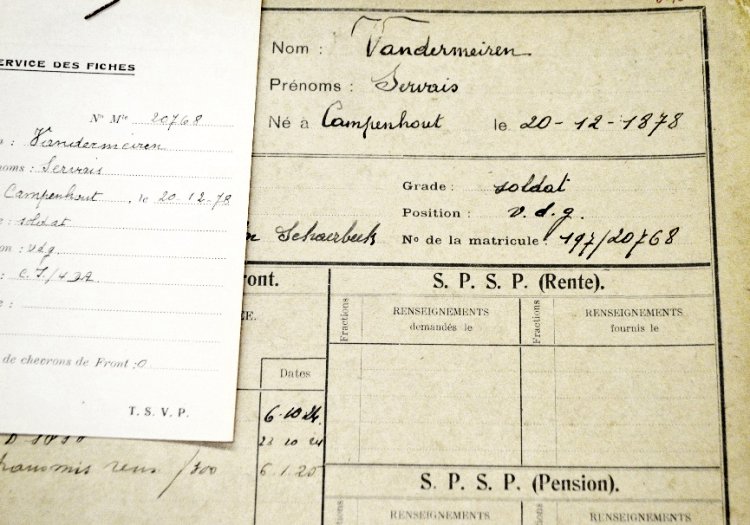 ERVICE DES FICHES
Nº Mle 20768
: Vandermeiren
noms : Servais
Campenhout, le 20-12-78
e : soldat
on : vdg
: C.I/4 DA
e :
de chevrons de Front : 0
T. S. V. P.
Nom : Vandermeiren
Prénoms : Servais
Né à Campenhout le 20-12-1878
Grade : soldat
Position : v.d.g.
Schaerbeek Nº de la matricule : 197/20768
ont.
ÉE.
Dates
6.10.24
23 10 24
rens /300 6.1.25
S. P. S. P. (Rente).
Fractions RENSEIGNEMENTS demandés le Fractions RENSEIGNEMENTS fournis le
S. P. S. P. (Pension).
Fractions RENSEIGNEMENTS Fractions RENSEIGNEMENTS